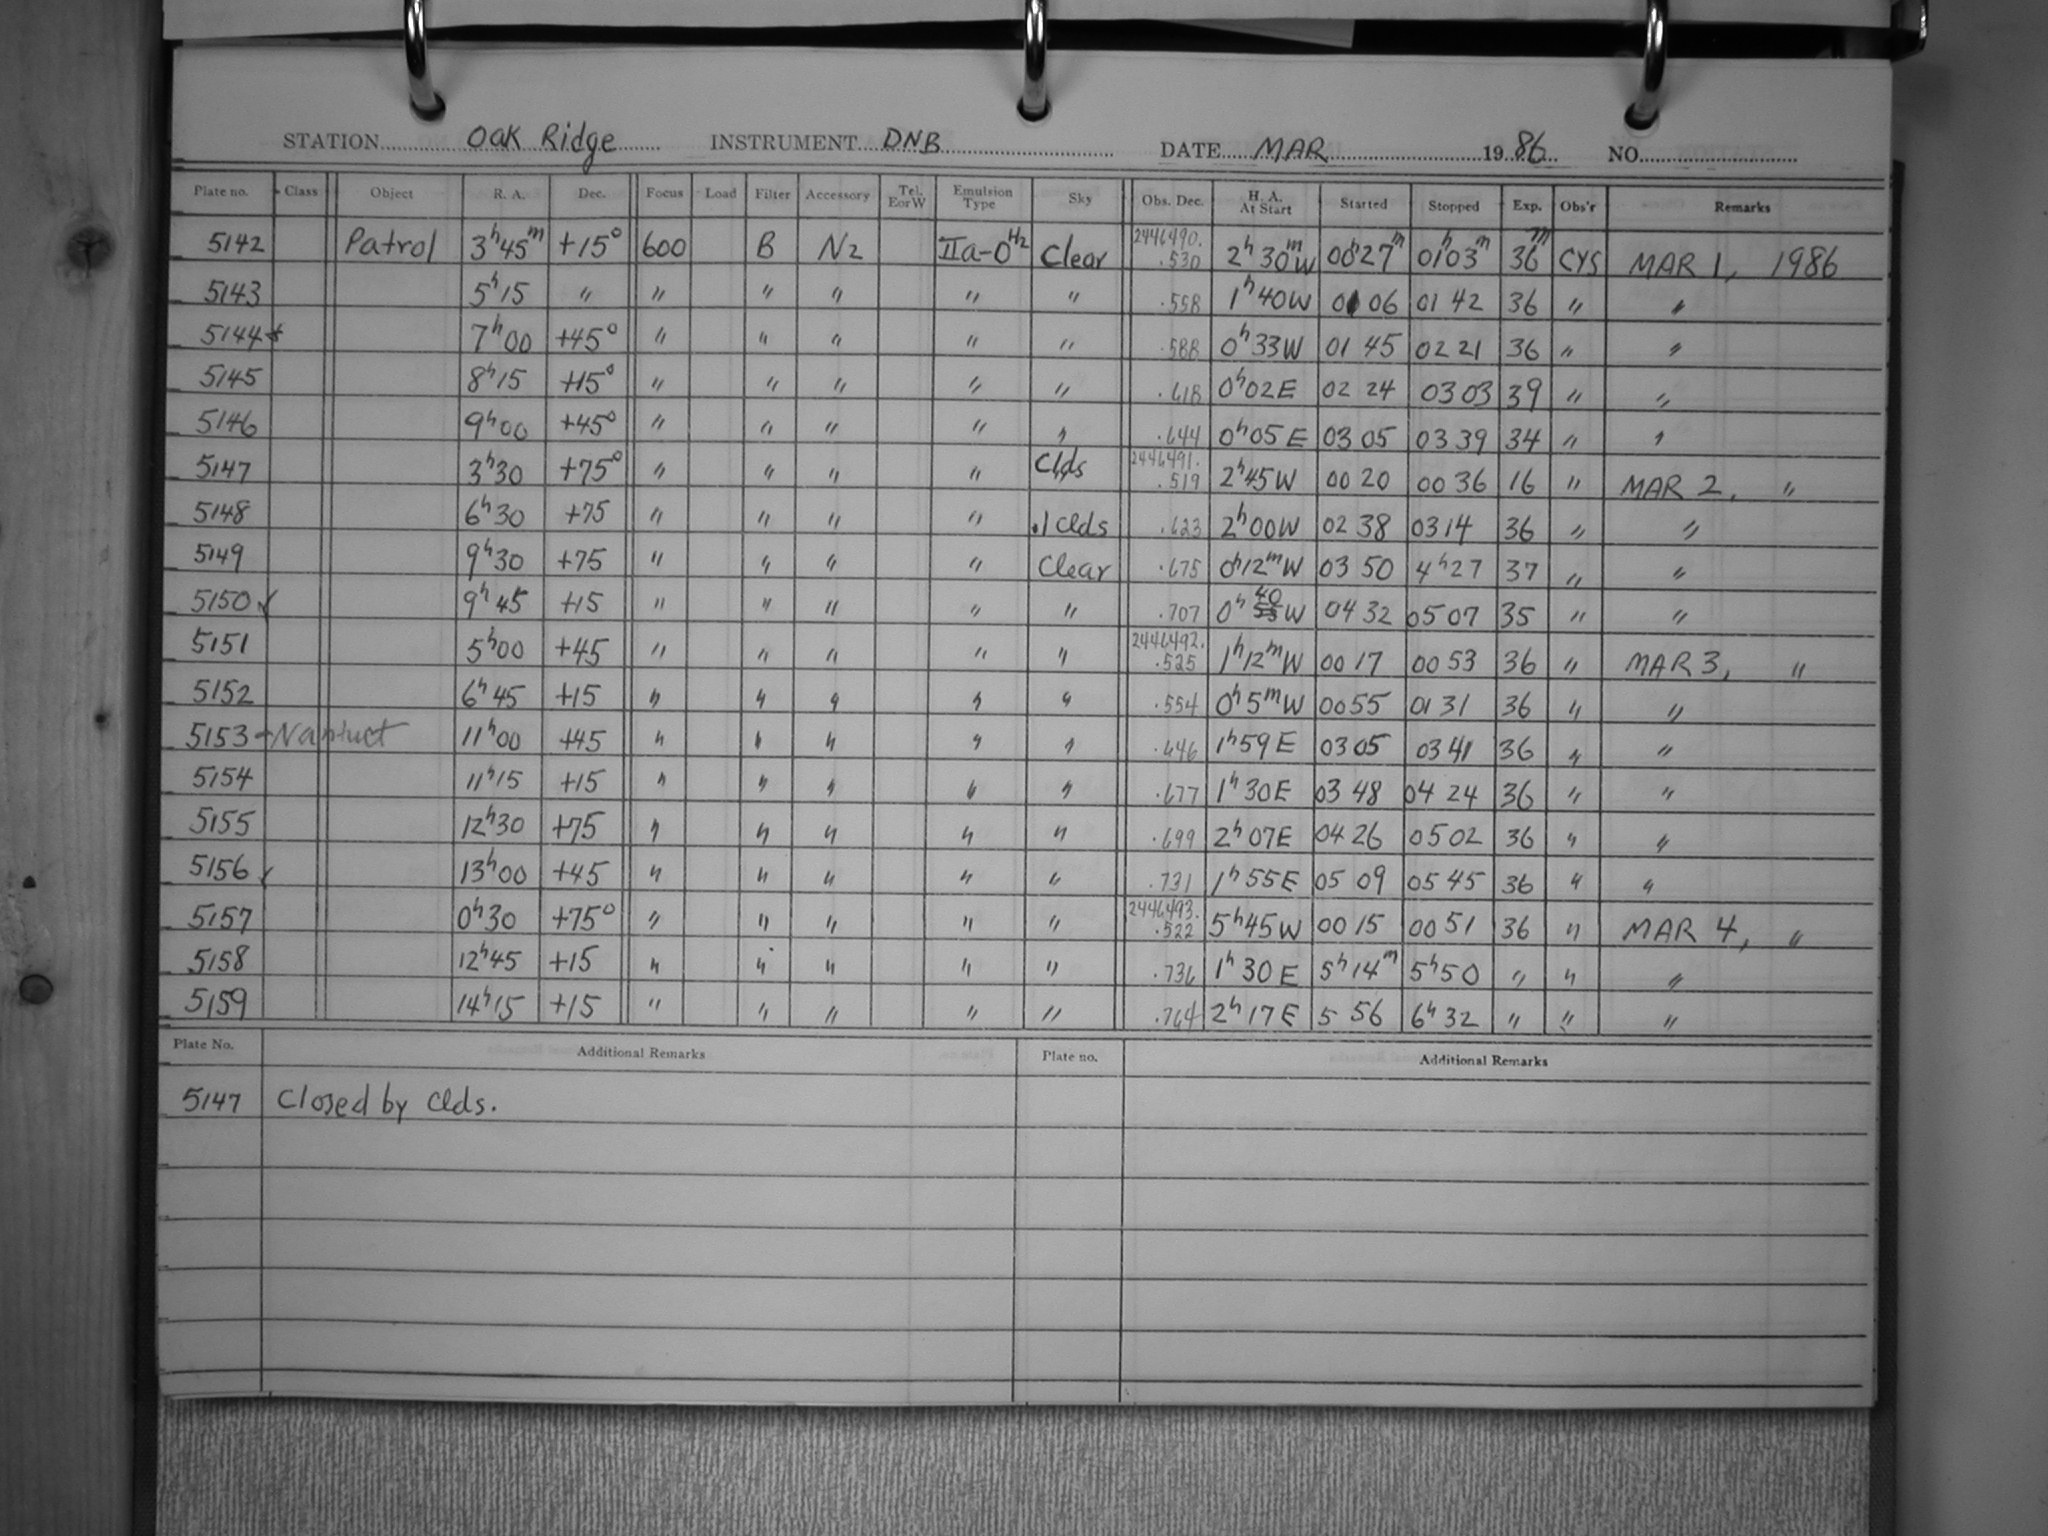 STATION Oak Ridge INSTRUMENT DNB DATE MAR 1986 NO.
Plate no. Class Object R. A. Dec. Focus Load Filter Accessory Tel. E or W Emulsion Type Sky Obs. Dec. H. A. At Start Started Stopped Exp. Obs'r Remarks
5142 Patrol 3h45m +15° 600 B N2 IIa-O H2 Clear 2446490. .530 2h30mW 00h27m 01h03m 36m CYS MAR 1, 1986
5143 5h15 " " " " " " .558 1h40W 01 06 01 42 36 " "
5144 7h00 +45° " " " " " .588 0h33W 01 45 02 21 36 " "
5145 8h15 +15° " " " " " .618 0h02E 02 24 03 03 39 " "
5146 9h00 +45° " " " " " .644 0h05E 03 05 03 39 34 " "
5147 3h30 +75° " " " " Clds 2446491. .519 2h45W 00 20 00 36 16 " MAR 2, "
5148 6h30 +75 " " " " .1 Clds .623 2h00W 02 38 03 14 36 " "
5149 9h30 +75 " " " " Clear .675 0h12mW 03 50 4h27 37 " "
5150 ✓ 9h45 +15 " " " " " .707 0h 40 W 04 32 05 07 35 " "
5151 5h00 +45 " " " " " 2446492. .525 1h12mW 00 17 00 53 36 " MAR 3, "
5152 6h45 +15 " " " " " .554 0h5mW 00 55 01 31 36 " "
5153 11h00 +45 " " " " " .646 1h59E 03 05 03 41 36 " "
5154 11h15 +15 " " " " " .677 1h30E 03 48 04 24 36 " "
5155 12h30 +75 " " " " " .699 2h07E 04 26 05 02 36 " "
5156 ✓ 13h00 +45 " " " " " .731 1h55E 05 09 05 45 36 " "
5157 0h30 +75° " " " " " 2446493. .522 5h45W 00 15 00 51 36 " MAR 4, "
5158 12h45 +15 " " " " " .736 1h30E 5h14m 5h50 " " "
5159 14h15 +15 " " " " " .764 2h17E 5 56 6h32 " " "
Plate No. Additional Remarks Plate no. Additional Remarks
5147 Closed by Clds.